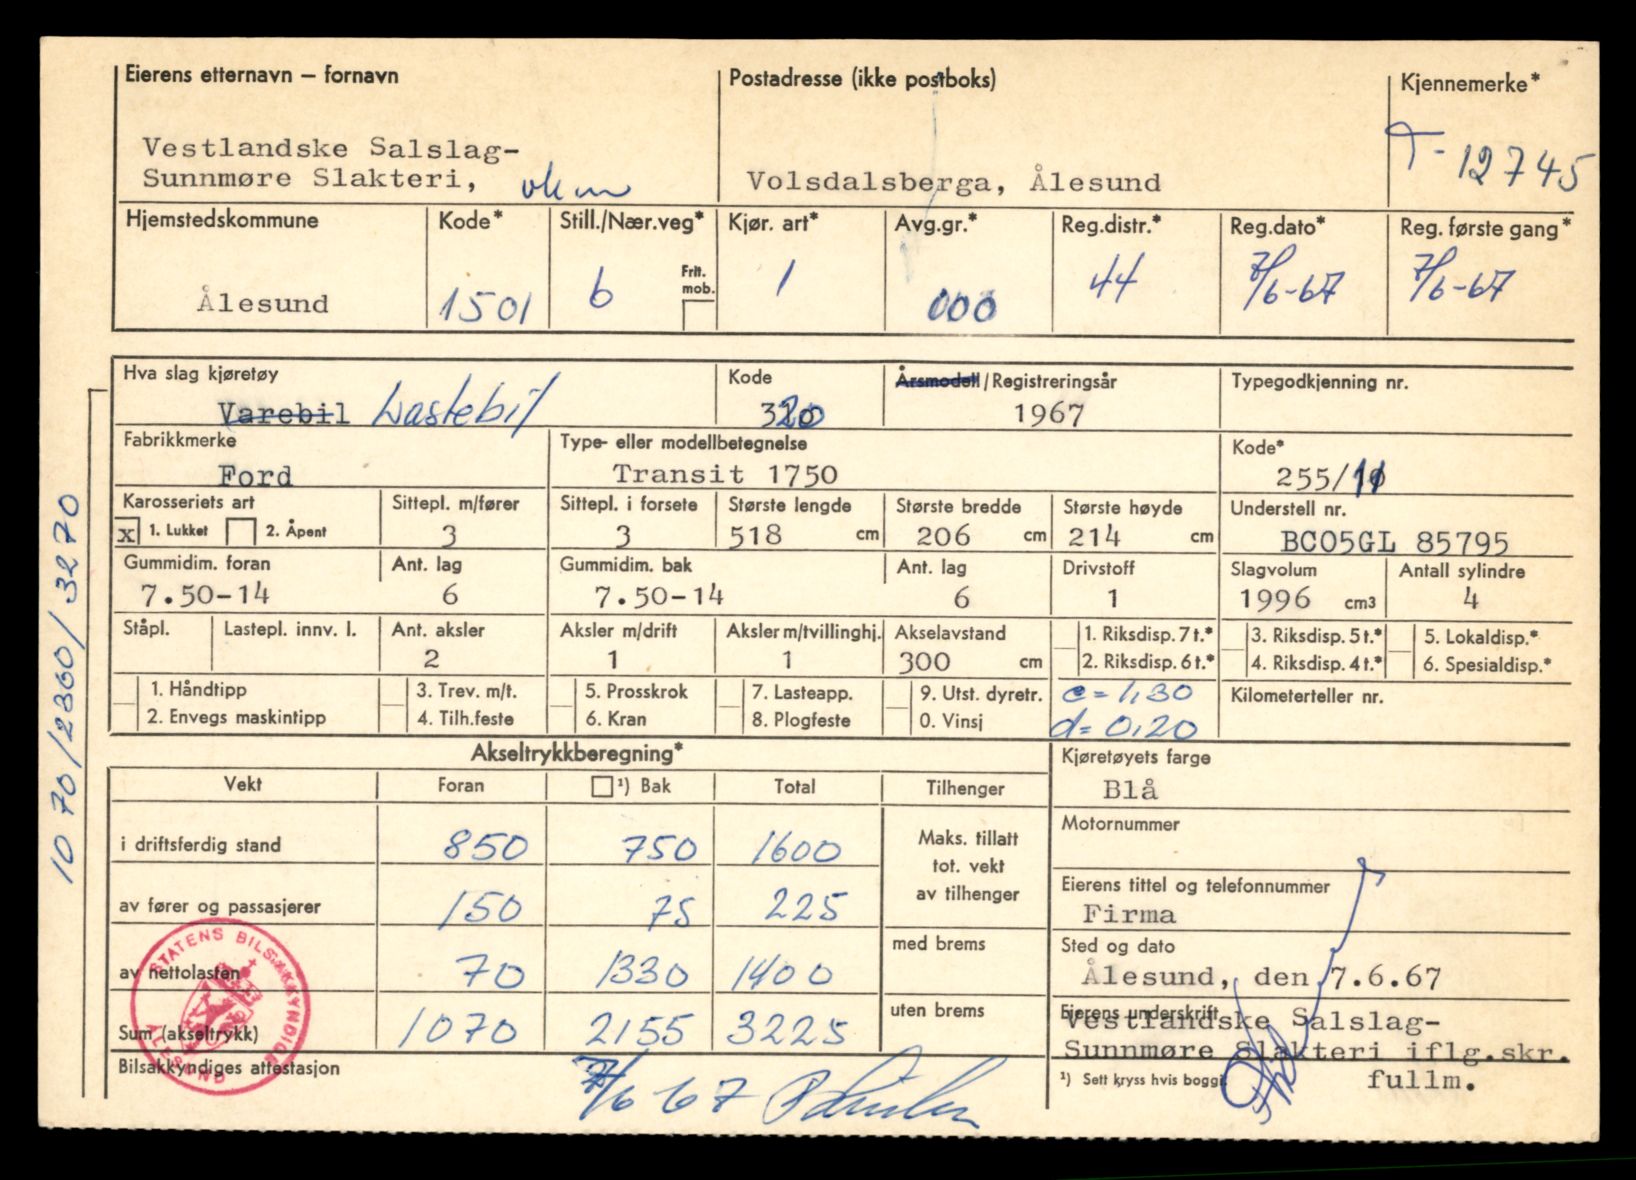 Eierens etternavn – fornavn
Postadresse (ikke postboks)
Kjennemerke*
Vestlandske Salslag-
Sunnmøre Slakteri,
Volsdalsberga, Ålesund
T-12745
Hjemstedskommune Kode* Still./Nær.veg* Kjør. art* Avg.gr.* Reg.distr.* Reg.dato* Reg. første gang*
Frit. mob.
Ålesund 1501 6 1 000 44 7/6-67 7/6-67
Hva slag kjøretøy Kode Årsmodell/Registreringsår Typegodkjenning nr.
Varebil Lastebil 320 1967
Fabrikkmerke Type- eller modellbetegnelse Kode*
Ford Transit 1750 255/11
Karosseriets art Sittepl. m/fører Sittepl. i forsete Største lengde Største bredde Største høyde Understell nr.
x 1. Lukket 2. Åpent 3 3 518 cm 206 cm 214 cm BC05GL 85795
Gummidim. foran Ant. lag Gummidim. bak Ant. lag Drivstoff Slagvolum Antall sylindre
7.50-14 6 7.50-14 6 1 1996 cm3 4
Ståpl. Lastepl. innv. l. Ant. aksler Aksler m/drift Aksler m/tvillinghj. Akselavstand 1. Riksdisp. 7 t.* 3. Riksdisp. 5 t.* 5. Lokaldisp.*
2 1 1 300 cm 2. Riksdisp. 6 t.* 4. Riksdisp. 4 t.* 6. Spesialdisp.*
1. Håndtipp 3. Trev. m/t. 5. Prosskrok 7. Lasteapp. 9. Utst. dyretr. c = 1,30 Kilometerteller nr.
2. Envegs maskintipp 4. Tilh.feste 6. Kran 8. Plogfeste 0. Vinsj d = 0,20
1070/2360/3270
Akseltrykkberegning*
Vekt Foran ¹) Bak Total Tilhenger
i driftsferdig stand 850 750 1600
Maks. tillatt
tot. vekt
av tilhenger
av fører og passasjerer 150 75 225
med brems
av nettolasten 70 1330 1400
uten brems
Sum (akseltrykk) 1070 2155 3225
Bilsakkyndiges attestasjon
7/6 67
STATENS BILSAKKYNDIGE
ÅLESUND
Kjøretøyets farge
Blå
Motornummer
Eierens tittel og telefonnummer
Firma
Sted og dato
Ålesund, den 7.6.67
Eierens underskrift
Vestlandske Salslag-
Sunnmøre Slakteri iflg.skr.
fullm.
¹) Sett kryss hvis boggi.